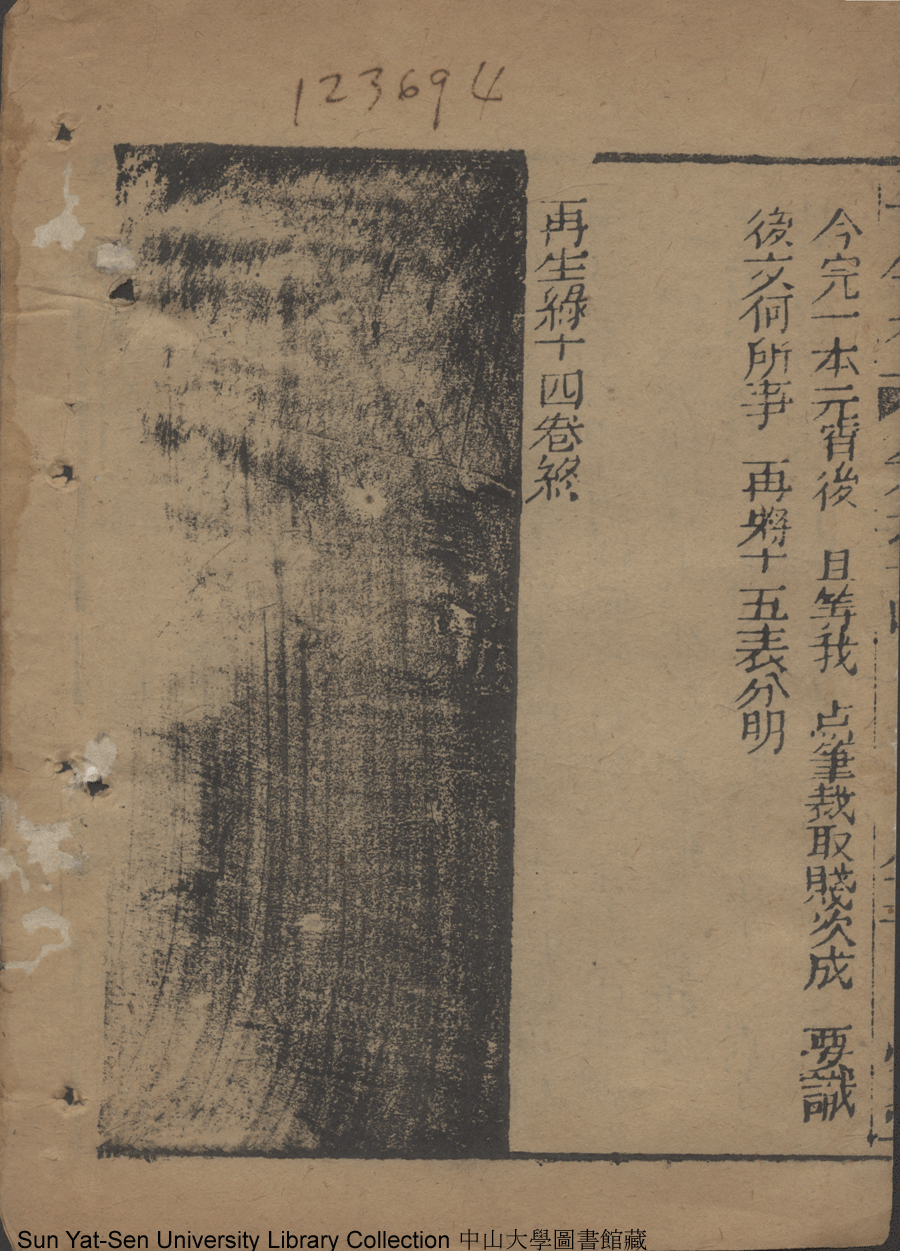 123694
今完一本元宵後　且等我　点筆裁取賤次成　要識
後文何所事　再將十五表分明
再生緣十四卷終
Sun Yat-Sen University Library Collection 中山大學圖書館藏